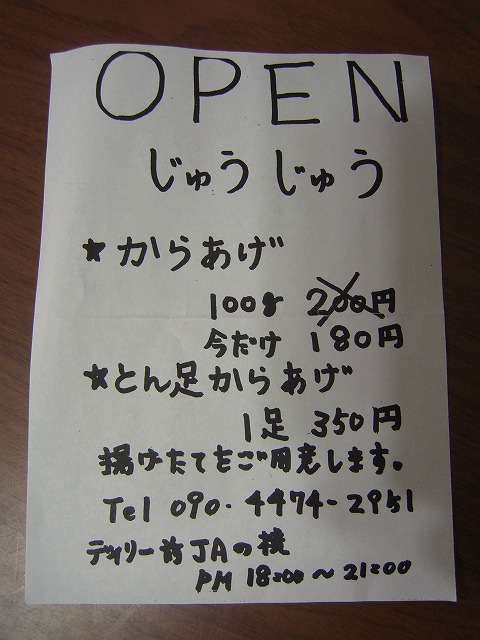 OPEN
じゅうじゅう
★からあげ
100g 200円
今だけ 180円
★とん足からあげ
1足 350円
揚げたてをご用意します。
Tel 090-4474-2951
デイリー前JAの横
PM 18:00～21:00